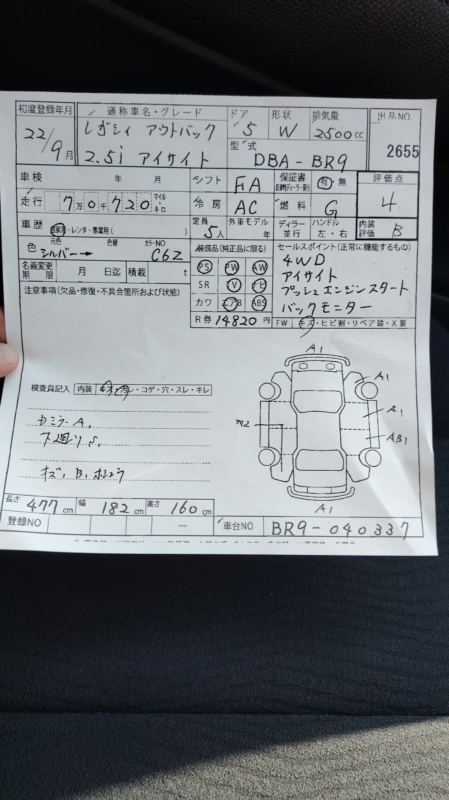 初度登録年月 通称車名・グレード ドア 形状 排気量 出品NO
22/9月 レガシィ アウトバック 5 W 2500cc
2.5i アイサイト 型式 DBA-BR9 2655
車検 年 月 シフト FA 保証書 有・無 評価点
走行 7万0千720 マイル・キロ 冷房 AC 燃料 G 4
車歴 自家用・レンタ・事業用( ) 定員 5人 外車モデル 年 ディラー 並行 ハンドル 左・右 内装評価 B
色 元色 シルバー→ 色替 カラーNO C6Z
装備品(純正品に限る) セールスポイント(正常に機能するもの)
名義変更期限 月 日迄 積載 t
PS PW AW 4WD
SR TV ナビ アイサイト
カワ エアB ABS プッシュエンジンスタート
R券 14820円 バックモニター
注意事項(欠品・修復・不具合箇所および状態)
FW キズ・ヒビ割・リペア跡・X要
検査員記入 内装 キズ・ヨゴレ・コゲ・穴・スレ・キレ
下廻りS,
A1
A1
B1
AB1
W2
A1
長さ 477cm 幅 182cm 高さ 160cm
登録NO 車台NO BR9-040337